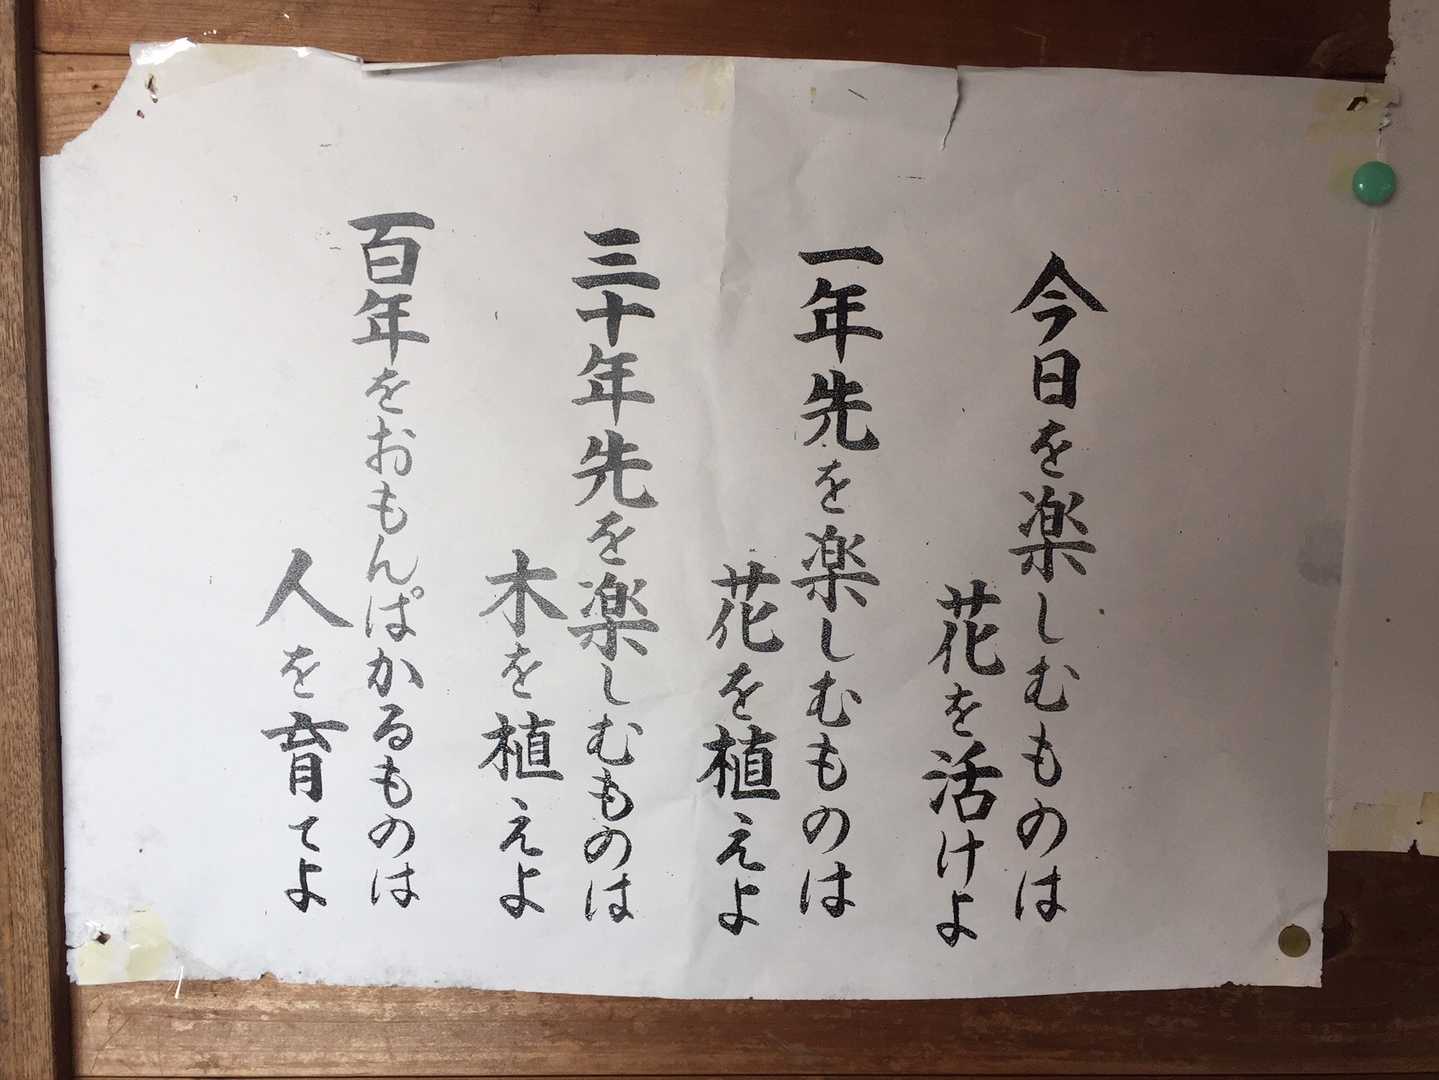 今日を楽しむものは
花を活けよ
一年先を楽しむものは
花を植えよ
三十年先を楽しむものは
木を植えよ
百年をおもんぱかるものは
人を育てよ